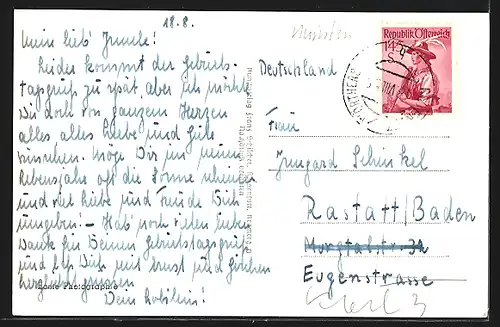 18.8.
Mein lieb' Irmele!
Leider kommt der Geburts-
tagsgruß zu spät, aber ich möchte
Dir doch von ganzem Herzen
alles alles Liebe und Gute
wünschen. Möge Dir im neuen
Lebensjahr oft die Sonne scheinen
und viel Liebe und Freude Dich
umgeben! - Hab' noch vielen lieben
Dank für Deinen Geburtstagsgruß
und laß Dich mit Ernst und
herzlichst grüssen
Dein
Echte Photographie
Republik Österreich
Deutschland
Frau
Irmgard Schinkel
Rastatt/Baden
Murgtalstr. 32
Eugenstrasse